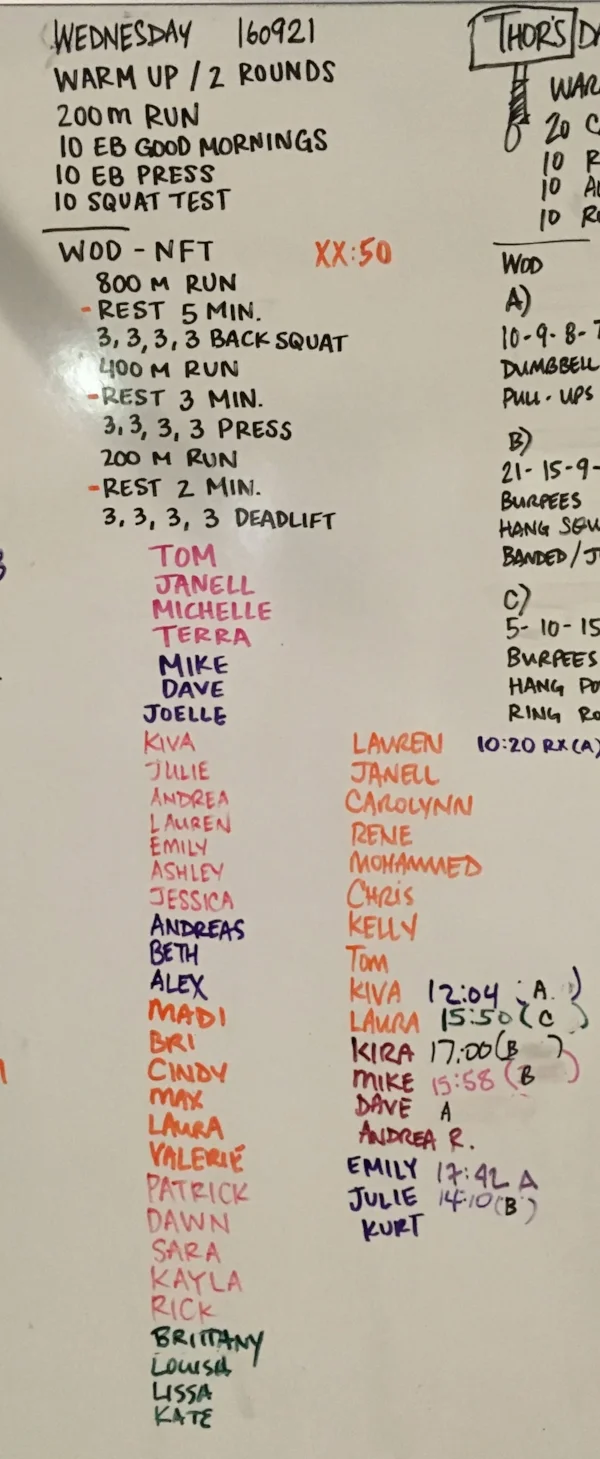 WEDNESDAY 160921
WARM UP / 2 ROUNDS
200 M RUN
10 EB GOOD MORNINGS
10 EB PRESS
10 SQUAT TEST
WOD - NFT XX:50
800 M RUN
- REST 5 MIN.
3, 3, 3, 3 BACK SQUAT
400 M RUN
- REST 3 MIN.
3, 3, 3, 3 PRESS
200 M RUN
- REST 2 MIN.
3, 3, 3, 3 DEADLIFT
TOM
JANELL
MICHELLE
TERRA
MIKE
DAVE
JOELLE
KIVA
JULIE
ANDREA
LAUREN
EMILY
ASHLEY
JESSICA
ANDREAS
BETH
ALEX
MADI
BRI
CINDY
MAX
LAURA
VALERIE
PATRICK
DAWN
SARA
KAYLA
RICK
BRITTANY
LOUISA
LISSA
KATE
THOR'S DA
WAR
20 C
10 R
10 A
10 RO
WOD
A)
10-9-8-7
DUMBBELL
PULL-UPS
B)
21-15-9-
BURPEES
HANG SQU
BANDED/J
C)
5-10-15
BURPEES
HANG PO
RING RO
LAUREN 10:20 RX (A)
JANELL
CAROLYNN
RENE
MOHAMMED
CHRIS
KELLY
TOM
KIVA 12:04 A )
LAURA 15:50 ( C )
KIRA 17:00 (B )
MIKE 15:58 (B )
DAVE A
ANDREA R.
EMILY 17:42 A
JULIE 14:10 (B)
KURT